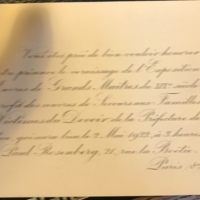 Vous êtes prié de bien vouloir honorer
présence le vernissage de l'Exposition
œuvres de Grands Maîtres du XIXe siècle
profit des œuvres de Secours aux Familles
Victimes du Devoir de la Préfecture de
qui aura lieu le 2 Mai 1922, à 2 heures
Paul Rosenberg, 21, rue la Boëtie
Paris